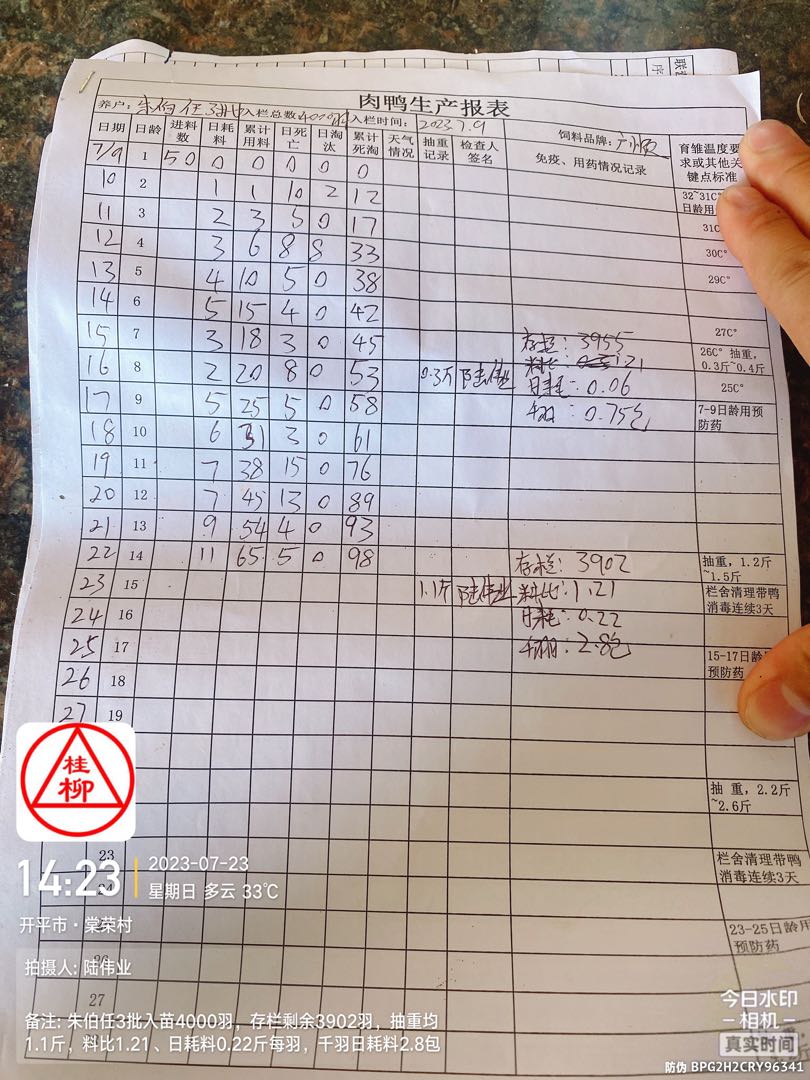 肉鸭生产报表
养户: 朱伯任3批 入栏总数: 4000 入栏时间: 2023.7.9 饲料品牌:
日期 日龄 进料数 日耗料 累计用料 日死亡 日淘汰 累计死淘 天气情况 抽重记录 检查人签名 免疫、用药情况记录 育雏温度要求或其他关键点标准
7/9 1 50 0 0 0 0 0
10 2 1 1 10 2 12 32~31C° 日龄用
11 3 2 3 5 0 17 31C°
12 4 3 6 8 8 33 30C°
13 5 4 10 5 0 38 29C°
14 6 5 15 4 0 42
15 7 3 18 3 0 45 存栏: 3955 27C°
16 8 2 20 8 0 53 0.3斤 陆伟业 料比: 1.21 26C° 抽重, 0.3斤~0.4斤
日耗: 0.06
17 9 5 25 5 0 58 千羽: 0.75包 25C°
18 10 6 31 3 0 61 7-9日龄用预防药
19 11 7 38 15 0 76
20 12 7 45 13 0 89
21 13 9 54 4 0 93
22 14 11 65 5 0 98 存栏: 3902 抽重, 1.2斤~1.5斤
23 15 1.1斤 陆伟业 料比: 1.21 栏舍清理带鸭消毒连续3天
24 16 日耗: 0.22
25 17 千羽: 2.8包 15-17日龄 预防药
26 18
27 19
抽 重, 2.2斤~2.6斤
23 栏舍清理带鸭消毒连续3天
24
25 23-25日龄用预防药
26
27
桂柳
14:23
2023-07-23
星期日 多云 33℃
开平市·棠荣村
拍摄人: 陆伟业
备注: 朱伯任3批入苗4000羽，存栏剩余3902羽，抽重均
1.1斤，料比1.21、日耗料0.22斤每羽，千羽日耗料2.8包
今日水印
-相机-
真实时间
防伪 BPG2H2CRY96341